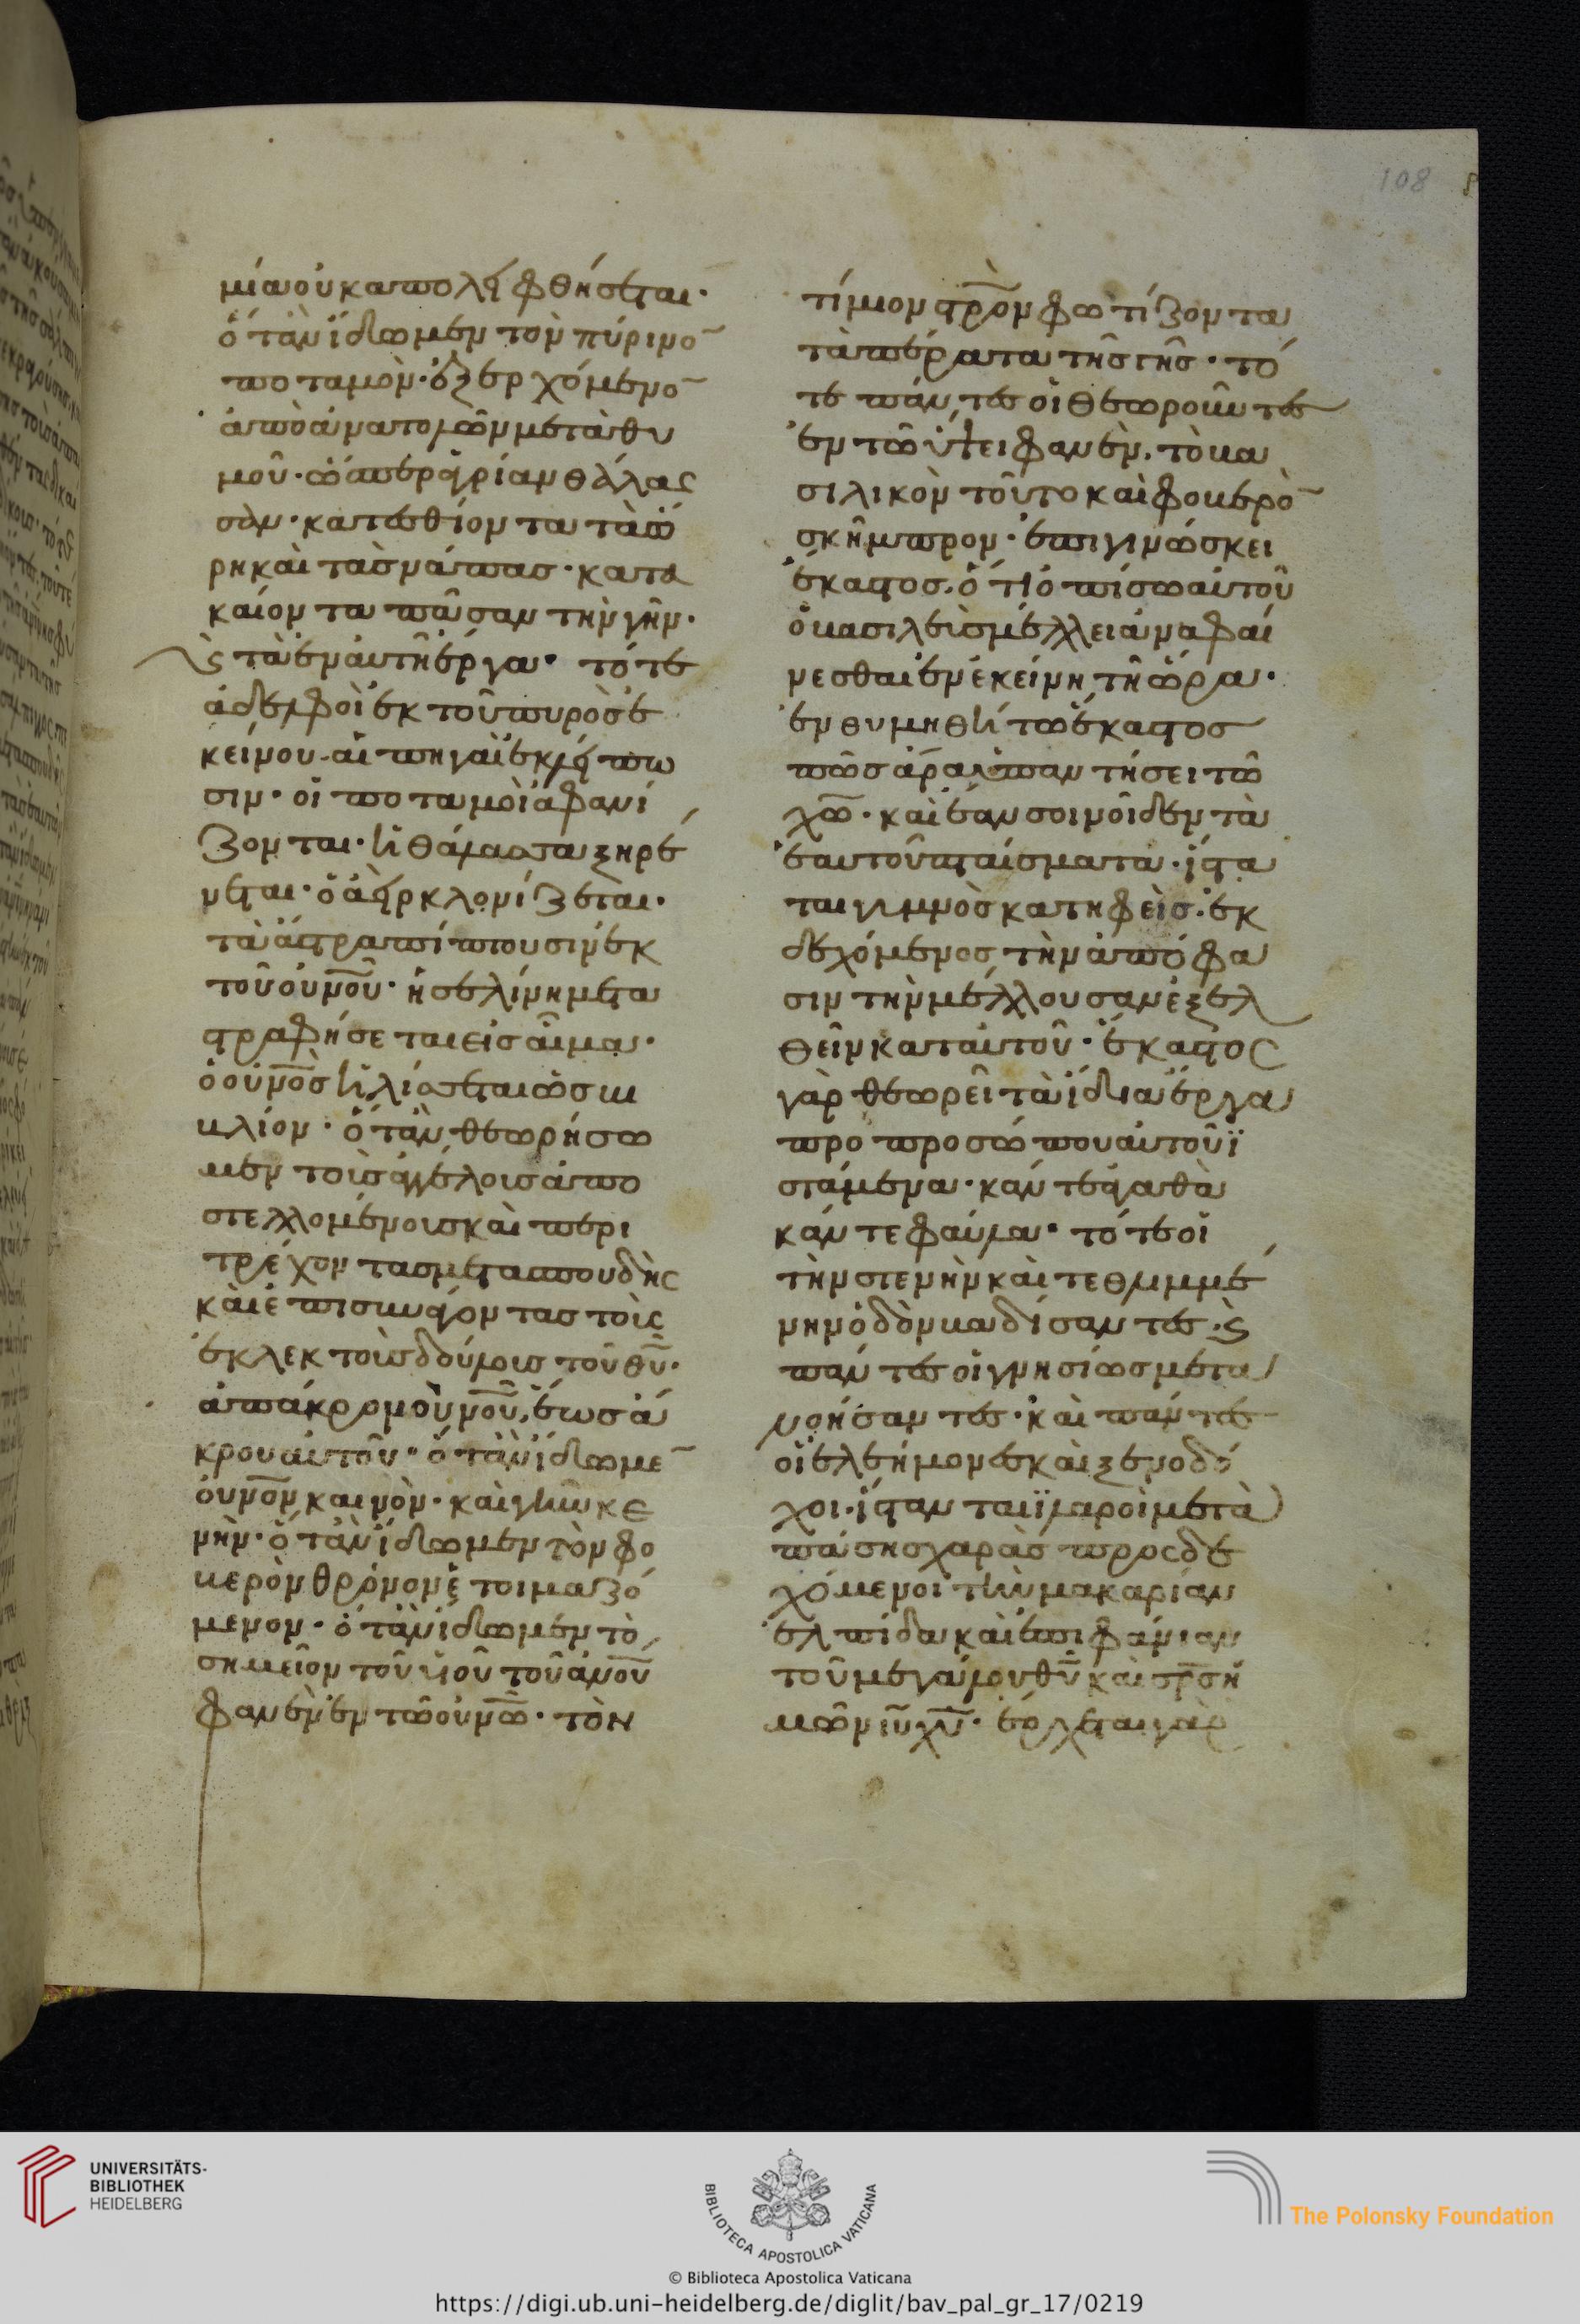 108
μία οὐ καταπολειφθήσεται·
ὅταν ἴδωμεν τὸν πύρινο̅
ποταμὸν· ἐξερχόμενο̅
ἀπὸ ἀνατολῶν μετὰ θυ
μοῦ· ὥσπερ ἀγρίαν θάλας
σαν· κατεσθίοντα τὰ ὄ
ρη καὶ τὰς νάπας· κατα
καίοντα πᾶσαν τὴν γῆν·
ϗ τὰ ἐν αὐτῇ ἔργα· τότε
ἀδελφοὶ ἐκ τοῦ πυρὸς ἐ
κείνου· αἱ πηγαὶ ἐκλείπω
σιν· οἱ ποταμοὶ ἀφανί
ζονται· ἡ θάλασσα ξηρέ
νεται· ὁ ἀὴρ κλονίζεται·
τὰ ἄστρα πίπτουσιν ἐκ
τοῦ οὐνοῦ· ἡ σελίνη μετα
στραφήσεται εἰς αἷμα·
ὁ οὐνὸς ἡλίσσεται ὡς βι
βλίον· ὅταν θεωρήσω
μεν τοὺς ἀγγέλους ἀπο
στελλομένους καὶ περι
τρέχοντας μετα σπουδῆς
καὶ ἐπισυνάγοντας τοὺς
ἐκλεκτοὺς δούλους τοῦ θυ·
ἀπ' ἄκρον οὐνοῦ, ἕως ἄ
κρου αὐτοῦ· ὅταν ἴδωμε̅
οὐνον καινὸν· καὶ γῆν κε
νὴν· ὅταν ἴδωμεν τὸν φο
βερὸν θρόνον ἑτοιμαζό
μενον· ὅταν ἴδωμεν τὸ
σημεῖον τοῦ υἱοῦ τοῦ ἀνου
φανὲν ἐν τῶ οὐνῶ· τὸν
τίμιον στρὸν φωτίζοντα
τὰ πέρατα τῆς γῆς· τό
τε πάντες οἱ θεωροῦντες
ἐν τῶ ὕψει φανὲν· τὸ βα
σιλικὸν τοῦτο καὶ φοβερὸ̅
σκῆπτρον· ἐπιγινώσκει
ἕκαστος· ὅτι ὀπίσω αὐτοῦ
ὁ βασιλεὺς μέλλει ἀναφαί
νεσθαι ἐν ἐκείνη τῆ ὥρα·
ἐνθυμηθήτω ἕκαστος
πῶς ἆρα ὑπαντήσει τῶ
χῶ· καὶ ἐὰν σοι μὴ οἶδεν τὰ
ἑαυτοῦ πταίσματα· ἵστα
ται γυμνὸς κατηφεὶς· ἐκ
δεχόμενος τὴν ἀπόφα
σιν τὴν μέλλουσαν ἐξελ
θεῖν κατ' αὐτοῦ· ἕκαστος
γὰρ θεωρεῖ τὰ ἴδια ἔργα
πρὸ προσώπου αὐτοῦ ϊ
στάμενα· κάν τε ἀγαθὰ
κάν τε φαύλα· τότε οἱ
τὴν στενὴν καὶ τεθλιμμέ
νην ὁδὸν βαδίσαντες· ϗ
πάντες οἱ γνησίως μετα
νοήσαντες· καὶ πάντες
οἱ ἐλεήμονες καὶ ξενοδό
χοι· ἵστανται ϊλαροὶ μετὰ
πάσης χαρὰς προςδε
χόμενοι τὴν μακαρίαν
ἐλπίδα καὶ ἐπιφάνιαν
τοῦ μεγάλου θυ καὶ σρς ἡ
μῶν ιυ χυ· ἔρχεται γὰρ
UNIVERSITÄTS-
BIBLIOTHEK
HEIDELBERG
BIBLIOTECA APOSTOLICA VATICANA
The Polonsky Foundation
© Biblioteca Apostolica Vaticana
https://digi.ub.uni-heidelberg.de/diglit/bav_pal_gr_17/0219